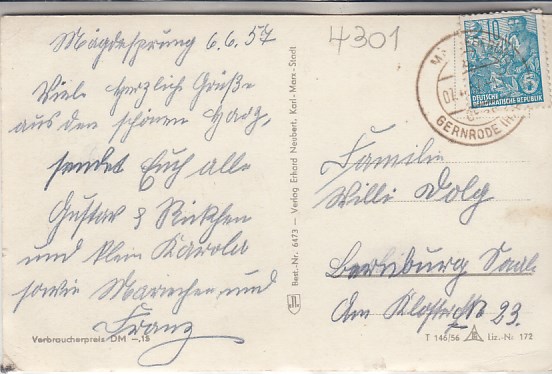 Mägdesprung 6.6.57
Viele herzliche Grüße
aus dem schönen Harz,
sendet Euch alle
Gustav & Rickchen
und klein Karola
sowie Mariechen und
Franz
Verbraucherpreis DM –,15
Best.-Nr. 6473 — Verlag Erhard Neubert, Karl-Marx-Stadt
4301
10
DEUTSCHE
DEMOKRATISCHE REPUBLIK
GERNRODE (H
Familie
Willi Dolg
Bernburg Saale
Am Kloster No 23.
T 146/56 Liz.-Nr. 172